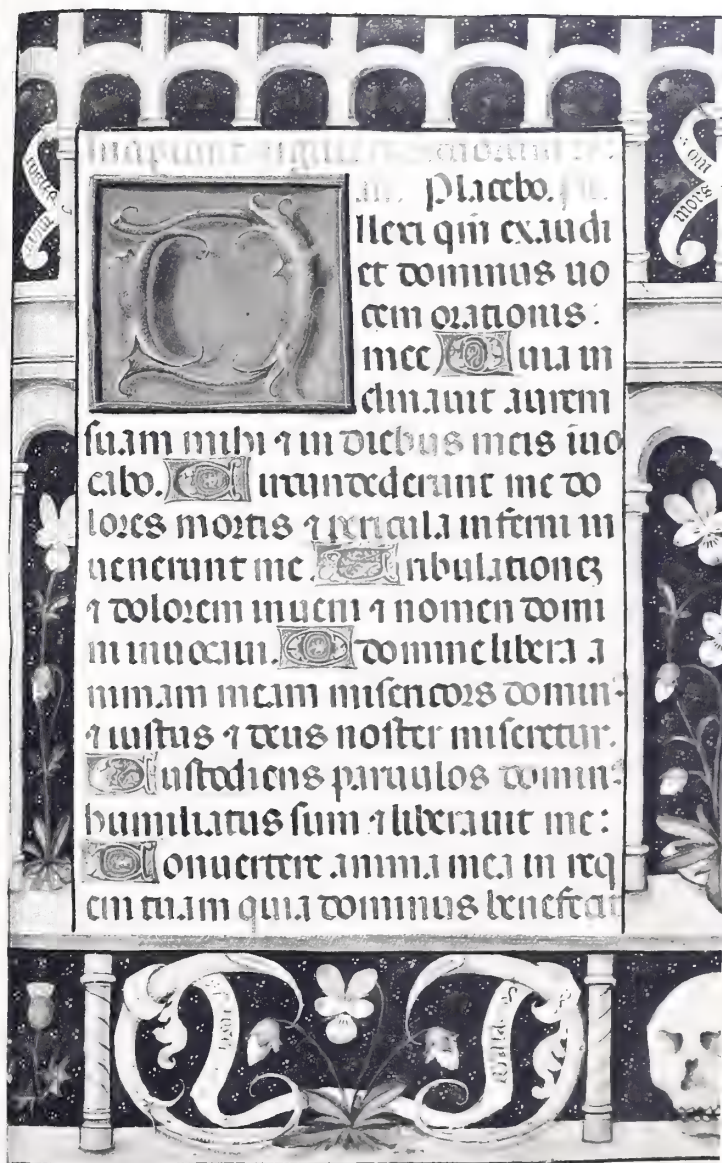 Incipiunt vigilie
Placebo.
Dilexi qm̄ exaudi
et dominus uo
cem orationis:
mee Quia in
clinauit aurem
suam mihi ⁊ in diebus meis inuo
cabo. Circundederunt me do
lores mortis ⁊ pericula inferni in
uenerunt me. Tribulationeꝫ
⁊ dolorem inueni ⁊ nomen domi
ni inuocaui. O domine libera a
nimam meam misericors domin᷒
⁊ iustus ⁊ deus noster miseretur.
Custodiens paruulos domin᷒
humiliatus sum ⁊ liberauit me:
Conuertere anima mea in req
em tuam quia dominus benefecit
mors